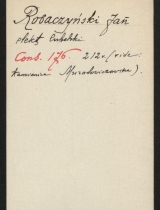 Robaczyński Jan
elekt lubelski
Cons. 176. 212v. (vide
Kamienica Muratowiczowska).